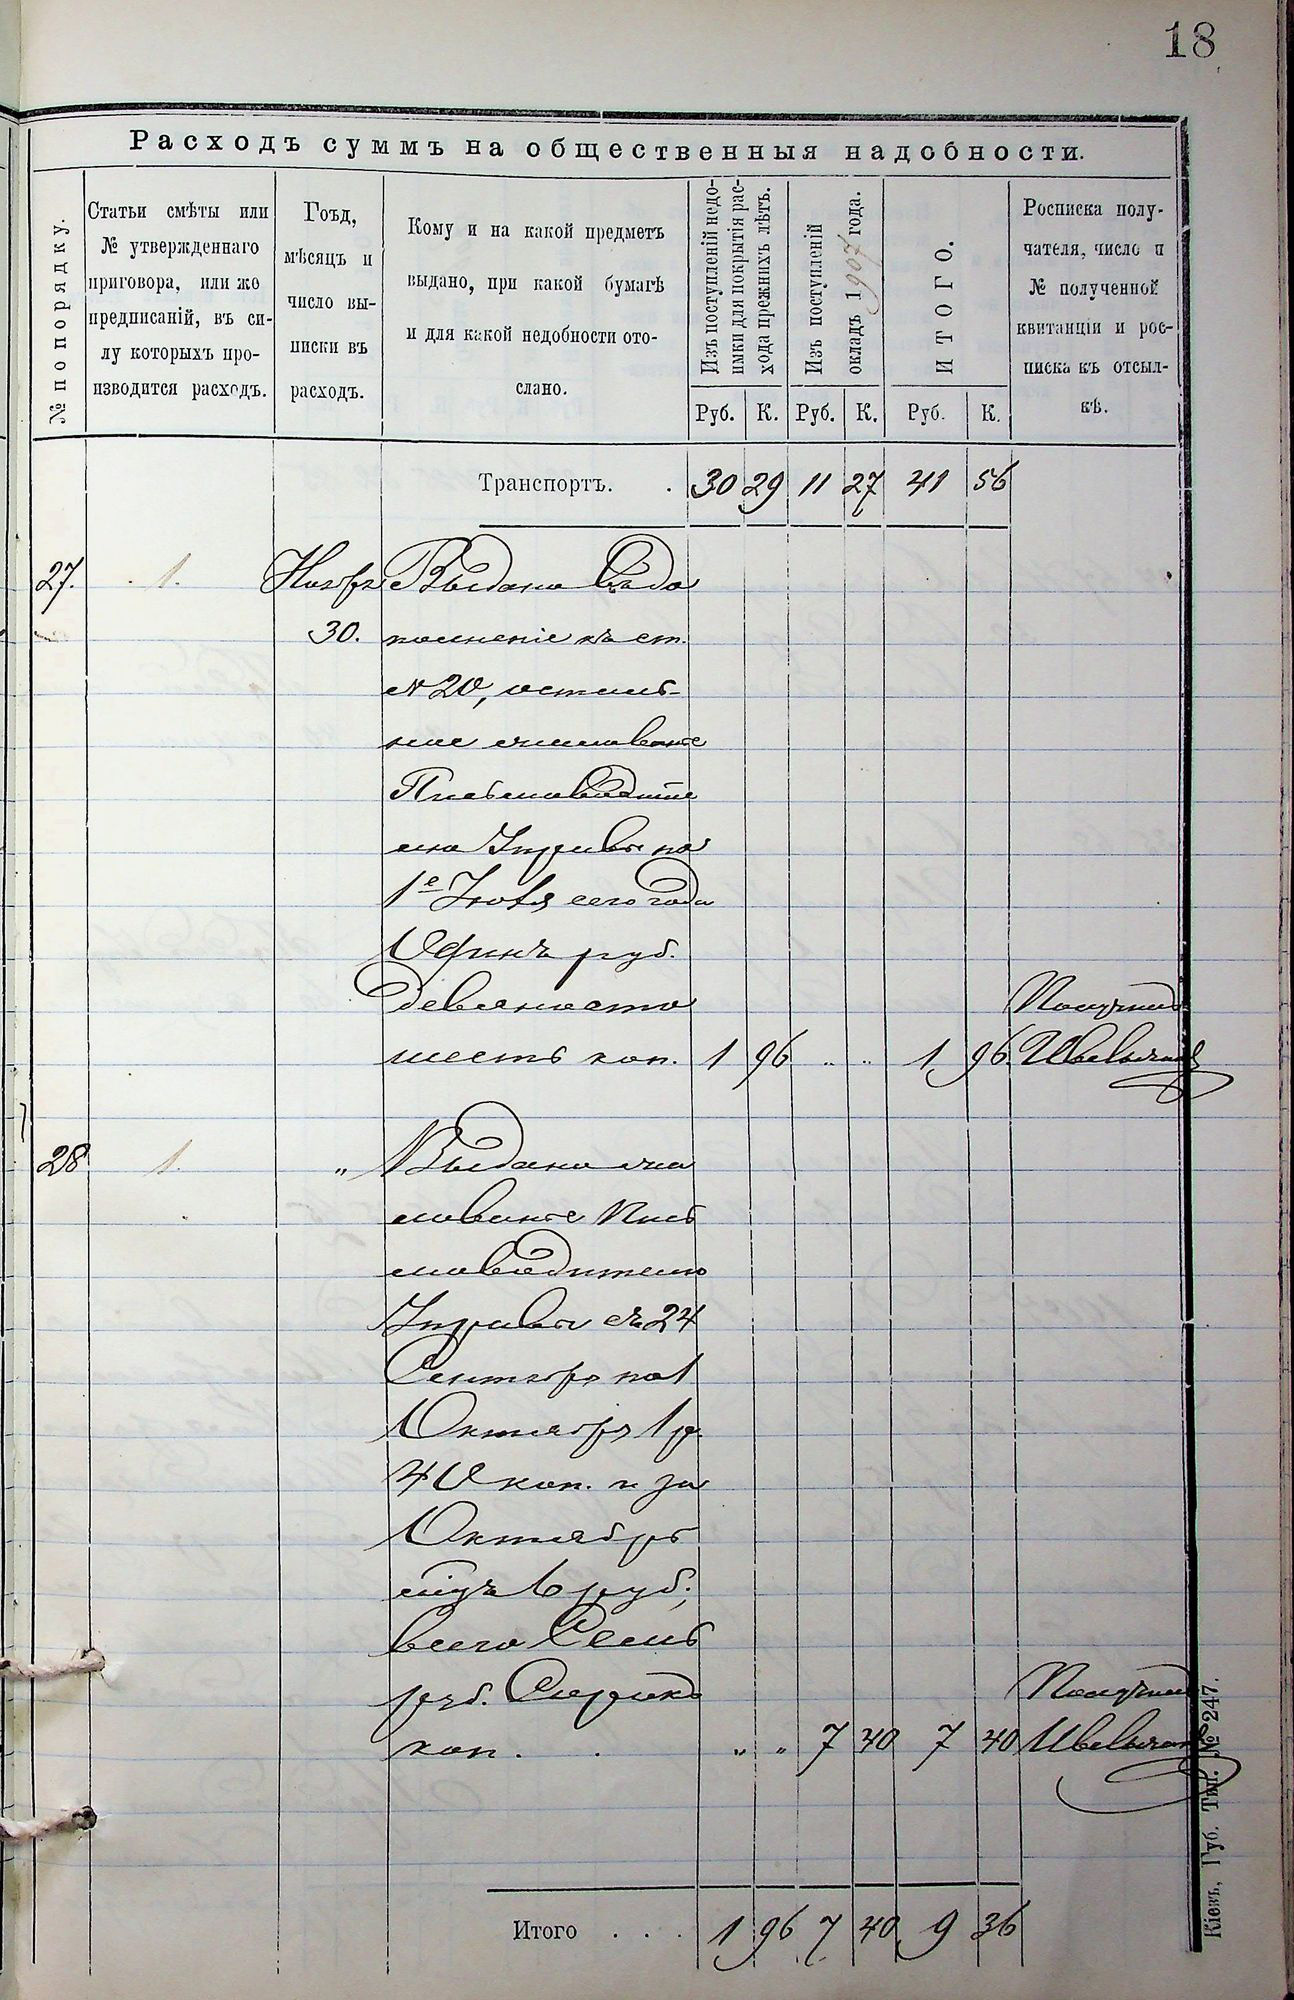 18
Расходъ суммъ на общественныя надобности.
№ по порядку.
Статьи смѣты или
№ утвержденнаго
приговора, или же
предписаній, въ си-
лу которыхъ про-
изводится расходъ.
Гоъд,
мѣсяцъ и
число вы-
писки въ
расходъ.
Кому и на какой предметъ
выдано, при какой бумагѣ
и для какой недобности ото-
слано.
Изъ поступленій недо-
имки для покрытія рас-
хода прежнихъ лѣтъ.
Изъ поступленій
окладъ 1907 года.
ИТОГО.
Росписка полу-
чателя, число и
№ полученной
квитанціи и рос-
писка къ отсыл-
кѣ.
Руб. К. Руб. К. Руб. К.
Транспортъ. . 30 29 11 27 41 56
27. 1. Ноябрь Выдано въ до
30. полненіе къ ст.
№ 20, осталь-
ное жалованье
Письмоводите
лю Управы по
1е Іюля сего года
Одинъ руб.
девяносто Получилъ
шесть коп. 1 96 " " 1 96
28 1. " Выдано жа
лованье Пись
моводителю
Управы съ 24
Сентября по 1
Октября 1 р.
40 коп. и за
Октябрь
мѣц 6 руб.,
всего Семь
руб. Сорокъ Получилъ
коп. . . " " 7 40 7 40
Итого . . . 1 96 7 40 9 36
Кіевъ, Губ. Тип. № 247.